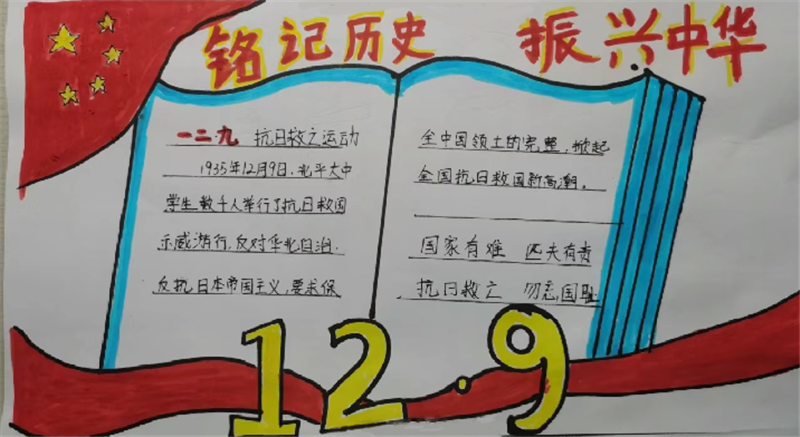 铭记历史 振兴中华
一二·九 抗日救亡运动
1935年12月9日，北平大中
学生数千人举行了抗日救国
示威游行，反对华北自治，
反抗日本帝国主义，要求保
全中国领土的完整，掀起
全国抗日救国新高潮。
国家有难 匹夫有责
抗日救亡 勿忘国耻
12·9